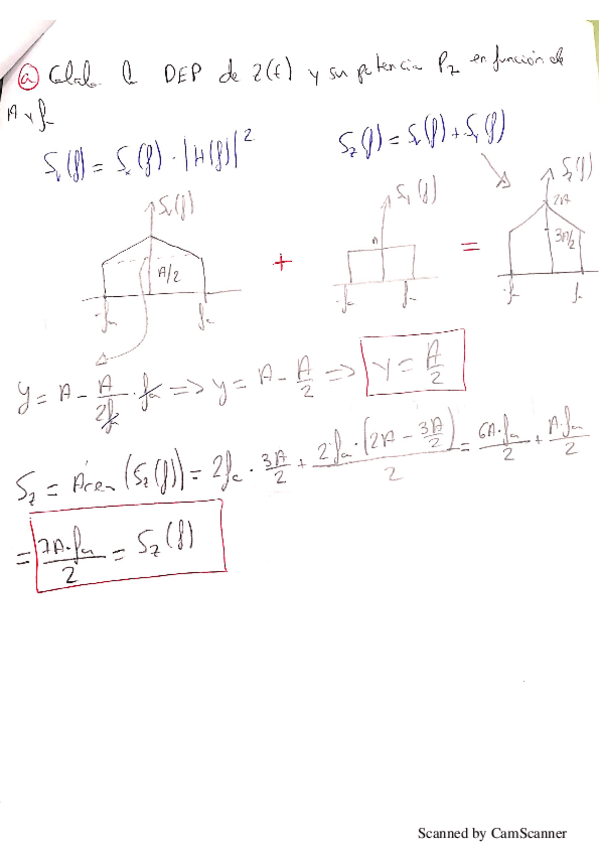 a) Calcula la DEP de z(t) y su potencia Pz en función de
A y fa
Sy(f) = Sx(f) · |H(f)|² Sz(f) = Sx(f) + Sy(f)
Sx(f) Sy(f) Sz(f)
A 2A
A/2 + = 3A/2
-fa fa -fa fa -fa f
y = A - A/2fa · fa => y = A - A/2 => y = A/2
Sz = Área (Sz(f)) = 2fa · 3A/2 + 2·fa·(2A - 3A/2)/2 = 6A·fa/2 + A·fa/2
= 7A·fa/2 = Sz(f)
Scanned by CamScanner